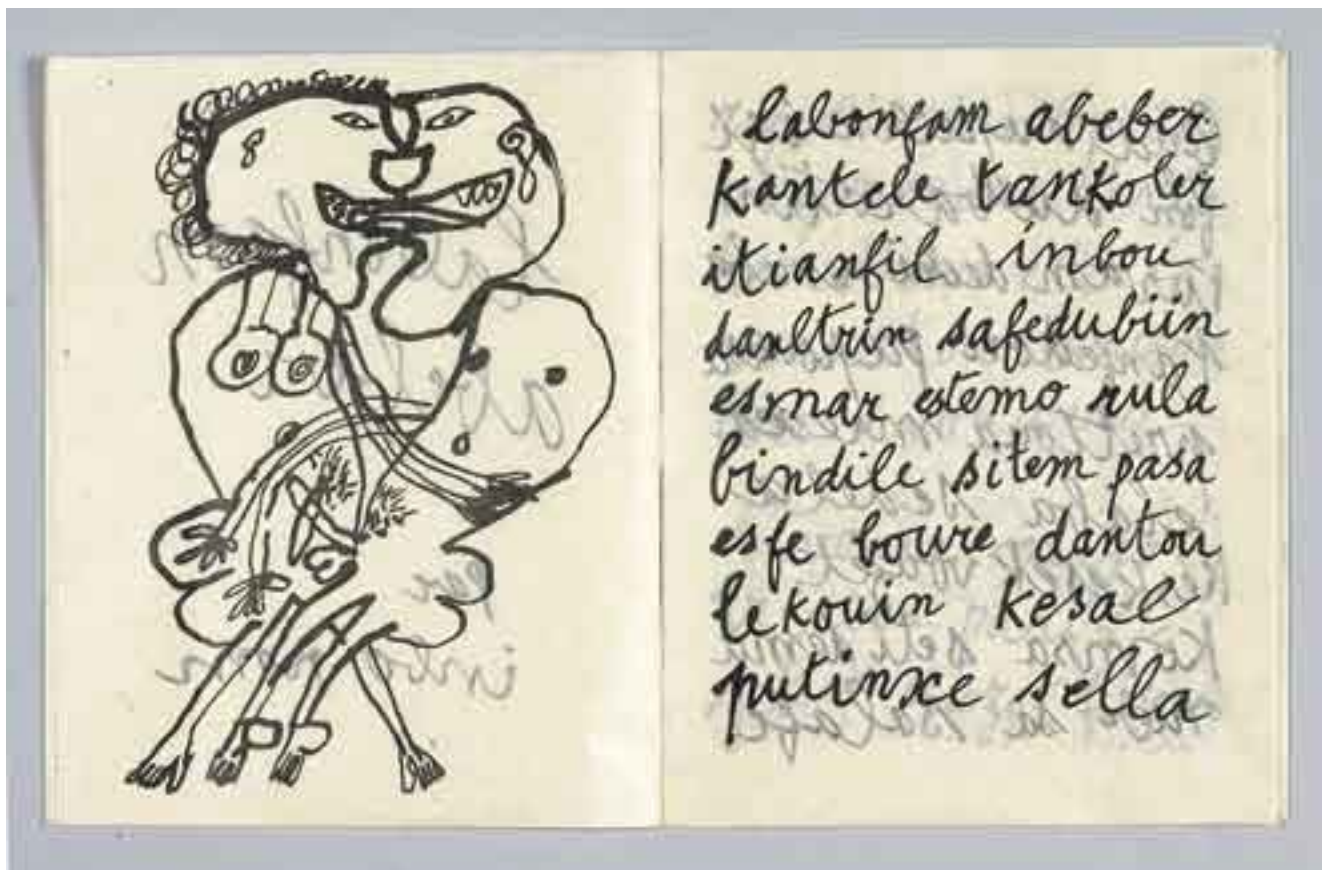 labonfam abeber
kantele tankoler
itianfil inbou
danltrin safedubiin
esmar estemo rula
bindile sitem pasa
esfe boure dantou
lekouin kesal
putinxce sella